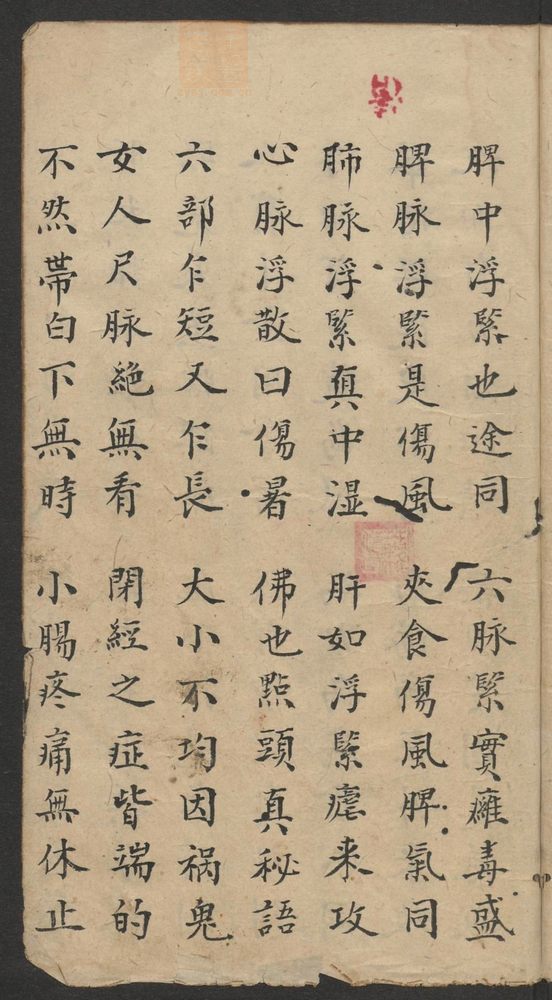 脾中浮緊也途同 六脉緊實癰毒盛
脾脉浮緊是傷風 夾食傷風脾氣同
肺脉浮緊真中湿 肝如浮緊瘧来攻
心脉浮散曰傷暑 佛也點頭真秘語
六部乍短又乍長 大小不均因祸鬼
女人尺脉絶無看 閉經之症皆端的
不然帶白下無時 小腸疼痛無休止